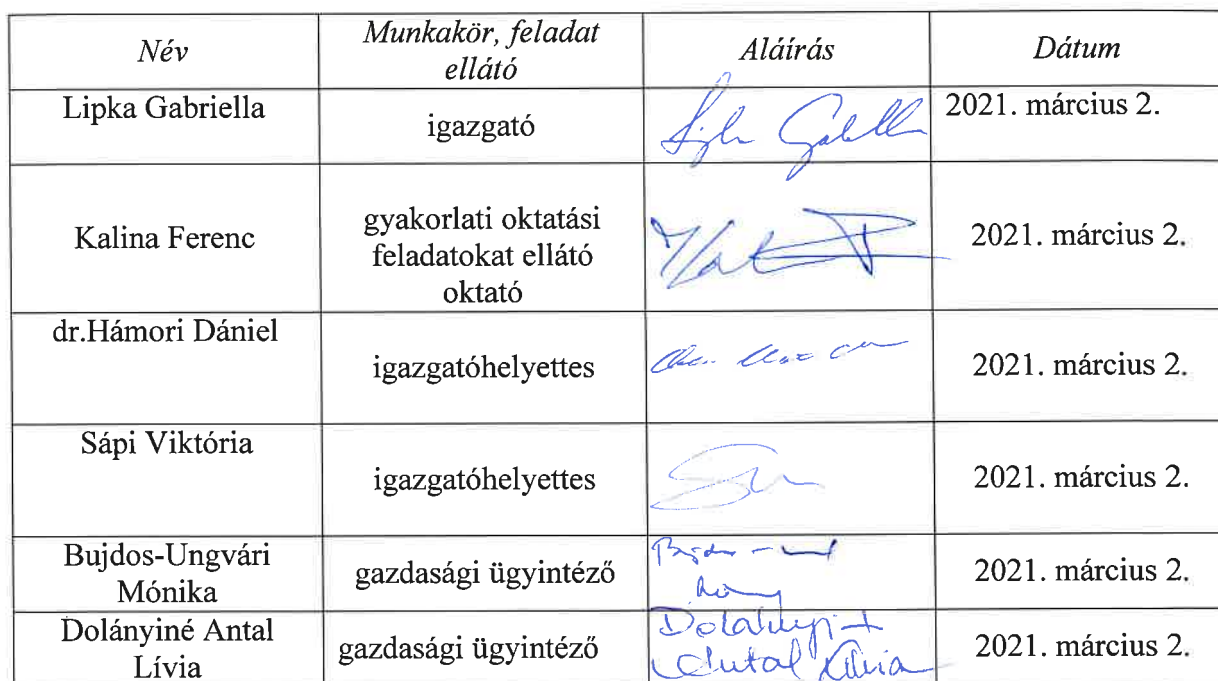 Név Munkakör, feladat ellátó Aláírás Dátum
Lipka Gabriella igazgató 2021. március 2.
Kalina Ferenc gyakorlati oktatási feladatokat ellátó oktató 2021. március 2.
dr.Hámori Dániel igazgatóhelyettes 2021. március 2.
Sápi Viktória igazgatóhelyettes 2021. március 2.
Bujdos-Ungvári Mónika gazdasági ügyintéző 2021. március 2.
Dolányiné Antal Lívia gazdasági ügyintéző Antal Lívia 2021. március 2.